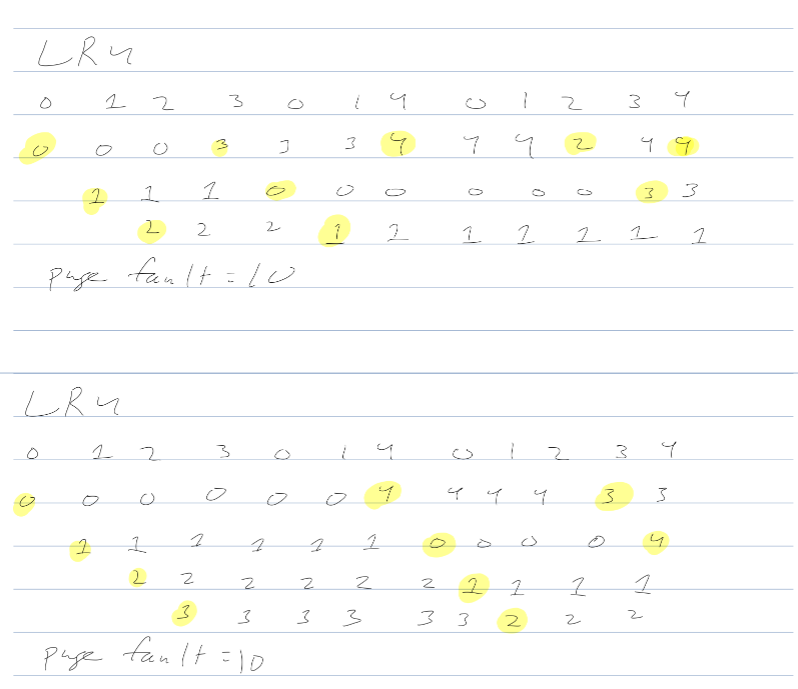 LRU
0 1 2 3 0 1 4 0 1 2 3 4
0 0 0 3 3 3 4 4 4 2 4 4
1 1 1 0 0 0 0 0 0 3 3
2 2 2 1 1 1 1 1 1 1
page fault = 10
LRU
0 1 2 3 0 1 4 0 1 2 3 4
0 0 0 0 0 0 4 4 4 4 3 3
1 1 1 1 1 1 0 0 0 0 4
2 2 2 2 2 2 1 1 1 1
3 3 3 3 3 3 2 2 2
page fault = 10